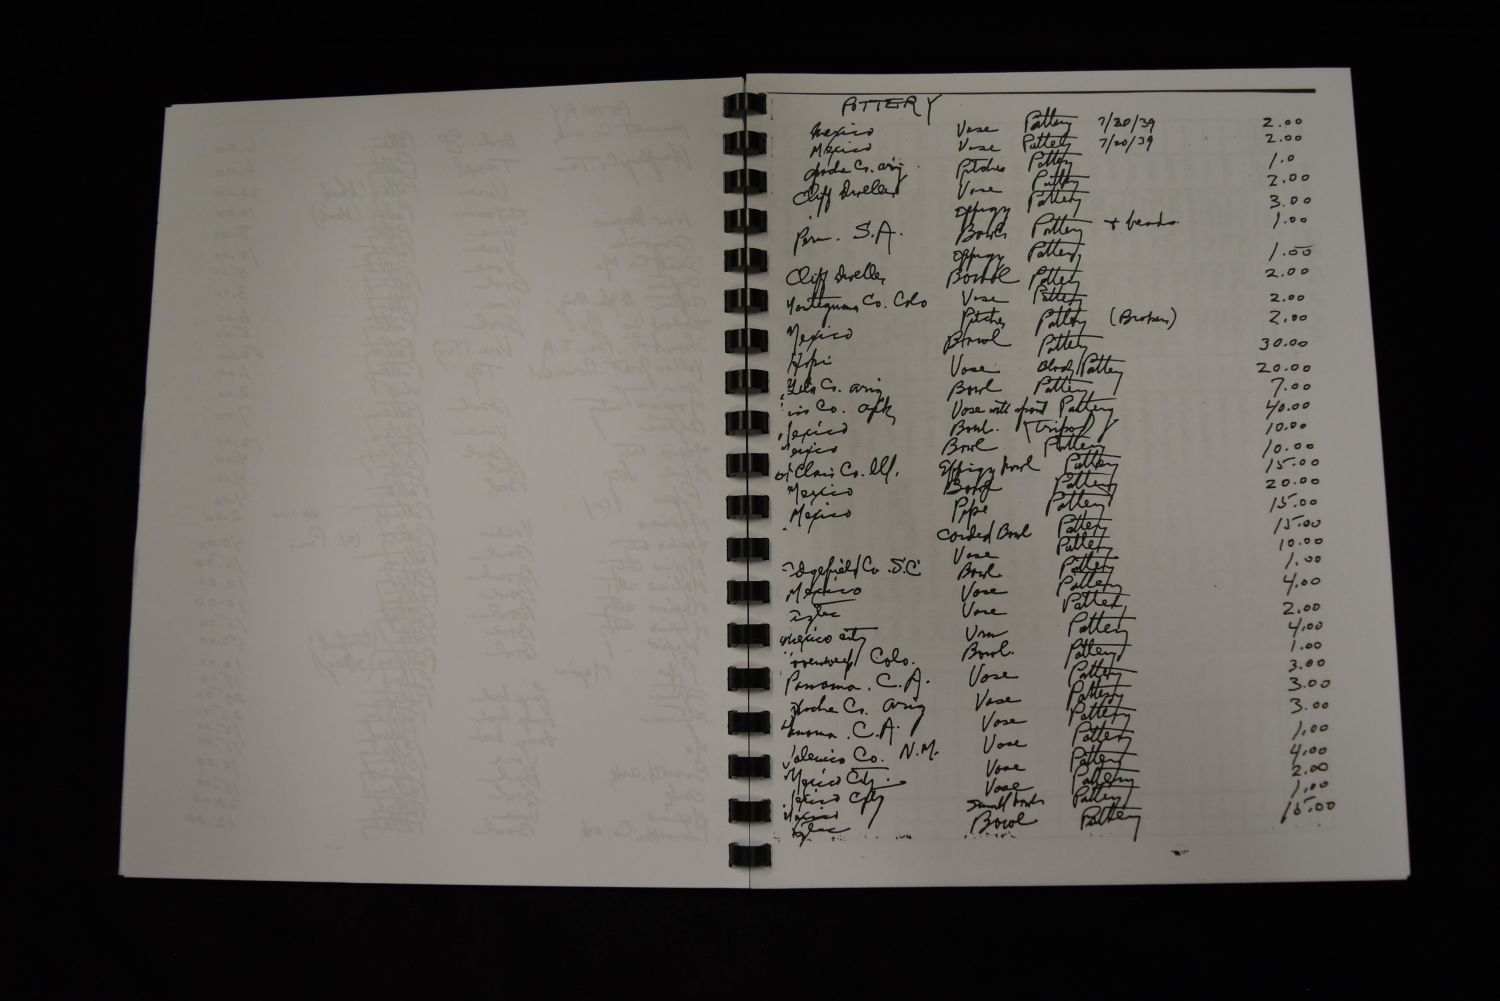 POTTERY
Mexico Vase Pottery 7/20/39 2.00
Mexico Vase Pottery 7/20/39 2.00
Apache Co. Ariz. Pitcher Pottery 1.0
Cliff Dweller Vase Pottery 2.00
Effigy Pottery 3.00
Peru. S.A. Bowls Pottery + beads 1.00
Effigy Pottery 1.00
Cliff Dweller Bowl Pottery 2.00
Montezuma Co. Colo Vase Pottery 2.00
Pitcher Pottery (Broken) 2.00
Mexico Bowl Pottery 30.00
Hopi Vase Pottery 20.00
Gila Co. Ariz Bowl Pottery 7.00
Co. Ark Vase with spout Pottery 40.00
Mexico Bowl. (Tripod) 10.00
Mexico Bowl Pottery 10.00
St Clair Co. Ill. Effigy bowl Pottery 15.00
Mexico Bowl Pottery 20.00
Mexico Pipe Pottery 15.00
Corded Bowl Pottery 15.00
Vase Pottery 10.00
Edgefield Co. S.C. Bowl Pottery 1.00
Mexico Vase Pottery 4.00
Aztec Vase Pottery 2.00
Mexico City Urn Pottery 4.00
Colo. Bowl. Pottery 1.00
Panama. C.A. Vase Pottery 3.00
Apache Co. Ariz Vase Pottery 3.00
Panama. C.A. Vase Pottery 3.00
Valencia Co. N.M. Vase Pottery 1.00
Mexico City. Vase Pottery 4.00
Mexico City Vase Pottery 2.00
Mexico Small bowl Pottery 1.00
Aztec Bowl Pottery 15.00